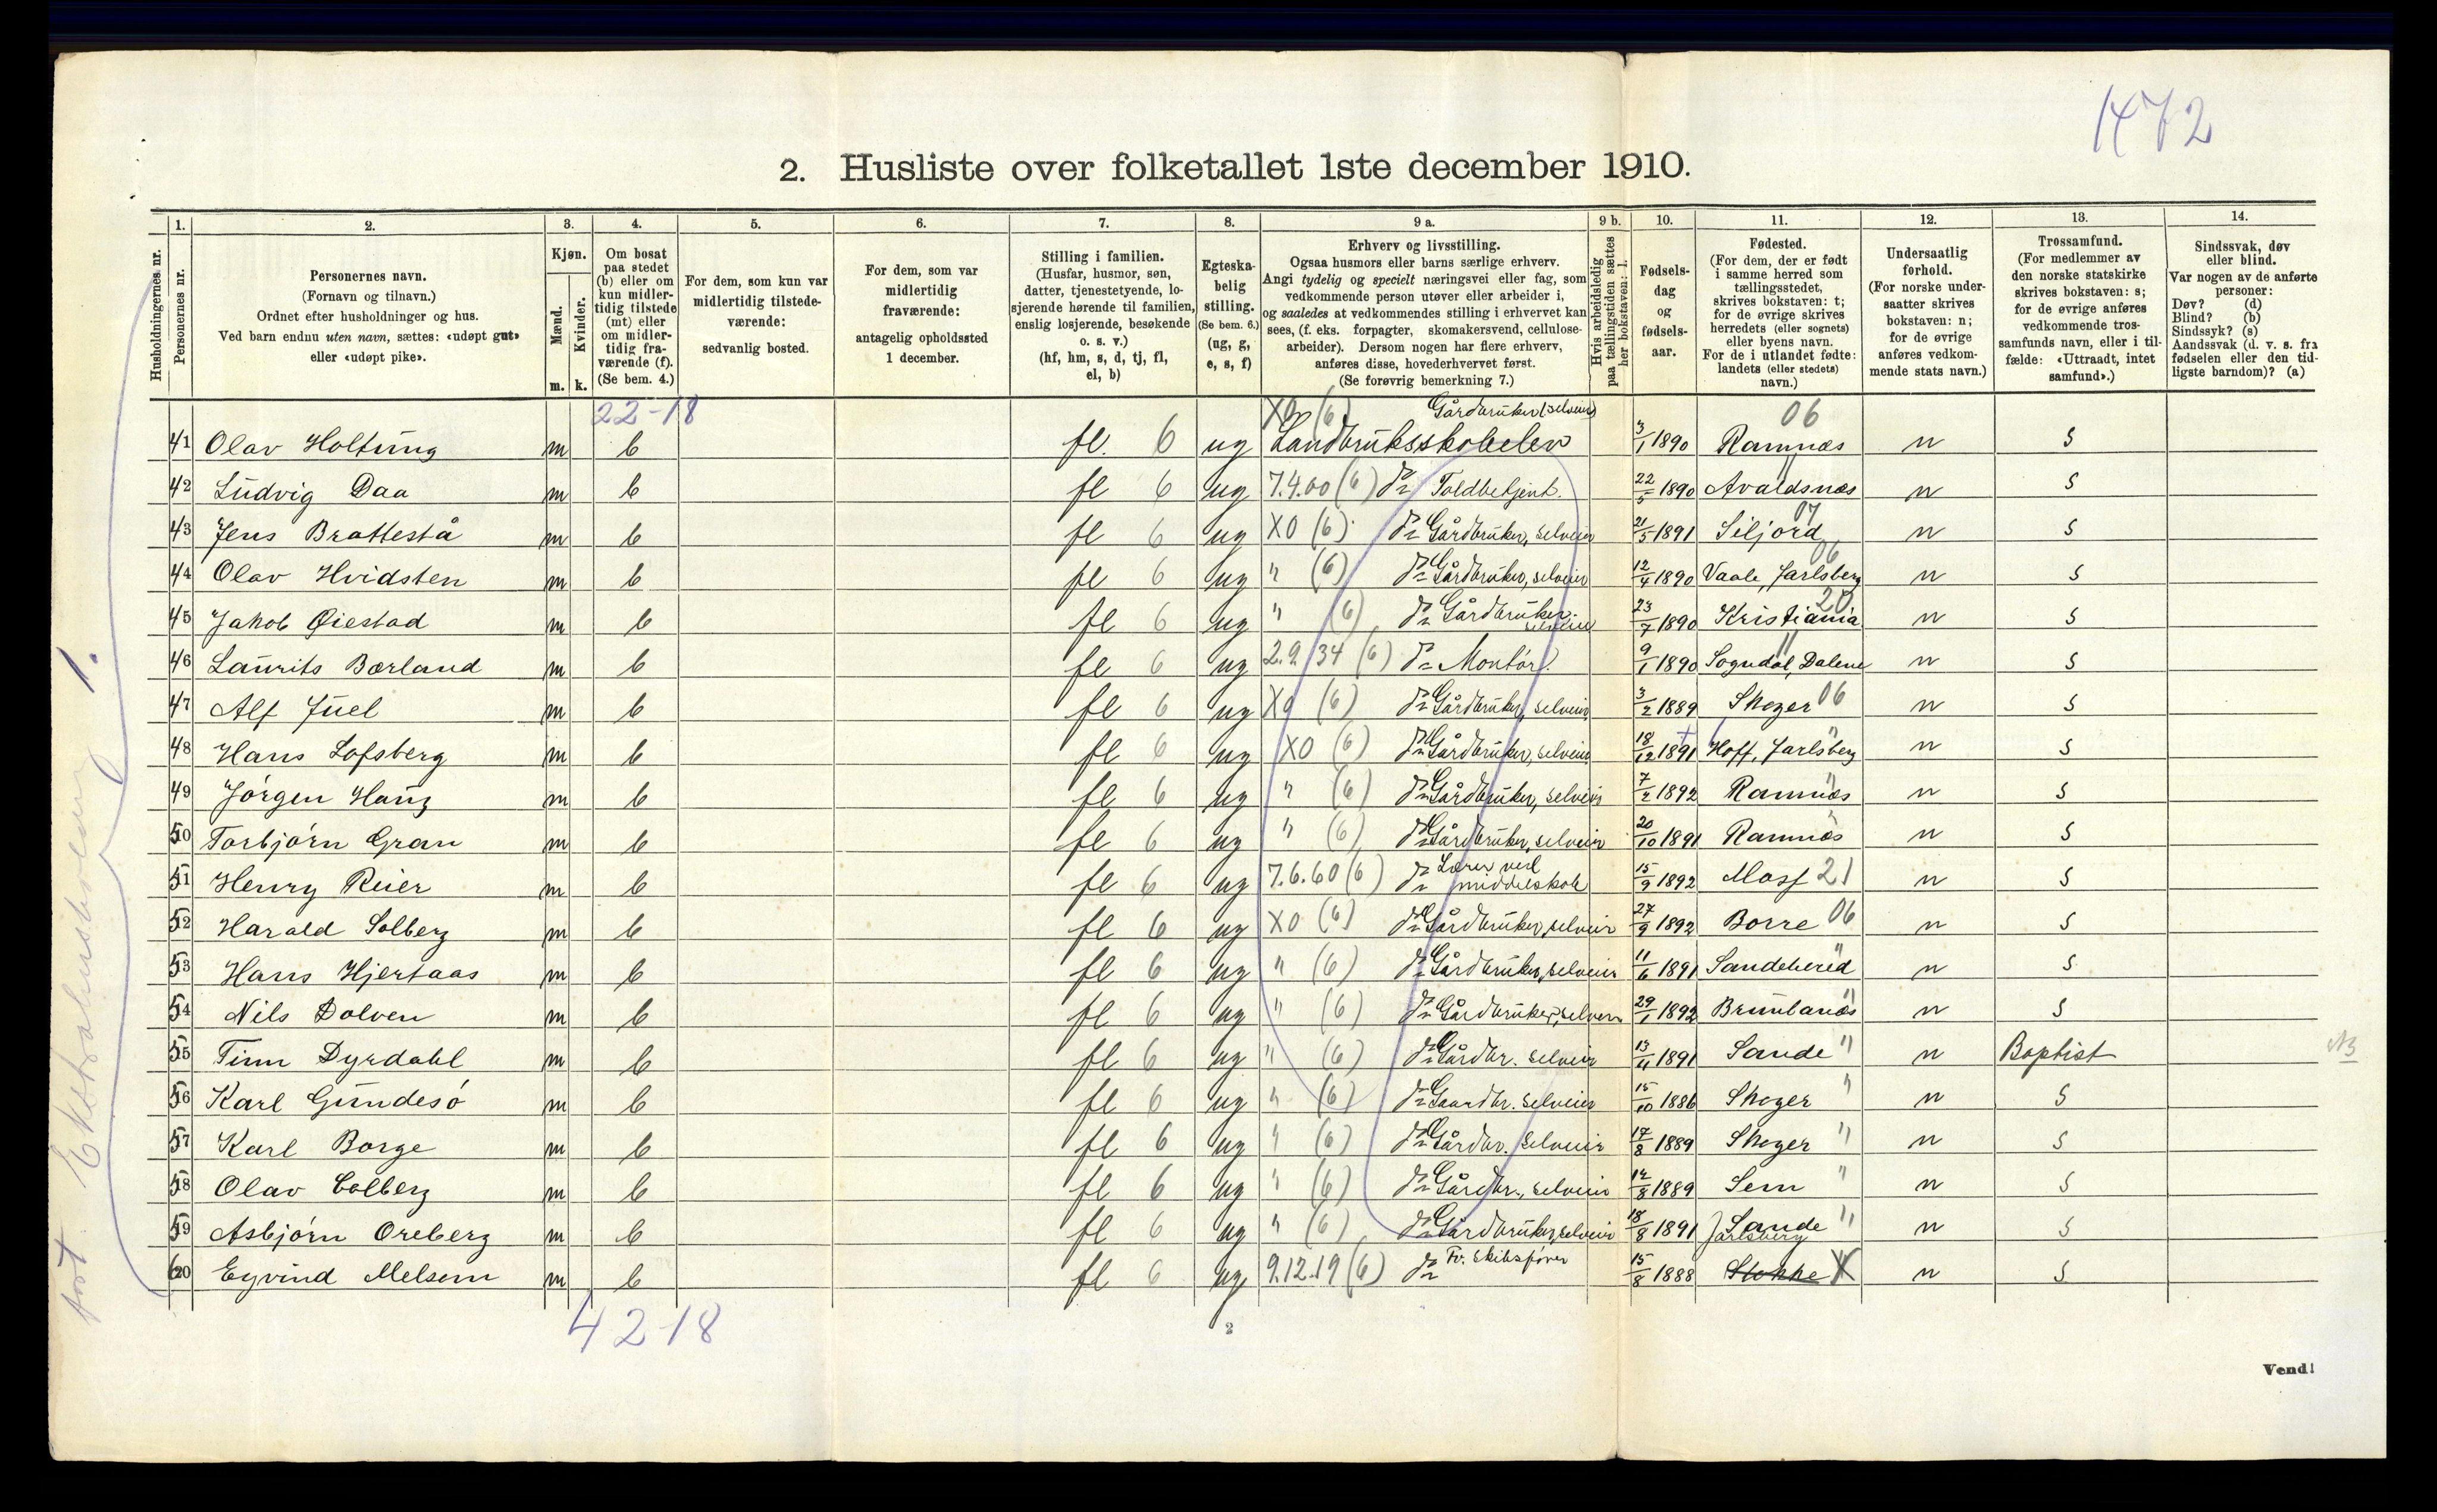 1472
2. Husliste over folketallet 1ste december 1910.
1. 2. 3. 4. 5. 6. 7. 8. 9 a. 9 b. 10. 11. 12. 13. 14.
Husholdningernes nr.
Personernes nr.
Personernes navn.
(Fornavn og tilnavn.)
Ordnet efter husholdninger og hus.
Ved barn endnu uten navn, sættes: «udøpt gut»
eller «udøpt pike».
Kjøn.
Mænd.
Kvinder.
m. k.
Om bosat
paa stedet
(b) eller om
kun midler-
tidig tilstede
(mt) eller
om midler-
tidig fra-
værende (f).
(Se bem. 4.)
For dem, som kun var
midlertidig tilstede-
værende:
sedvanlig bosted.
For dem, som var
midlertidig
fraværende:
antagelig opholdssted
1 december.
Stilling i familien.
(Husfar, husmor, søn,
datter, tjenestetyende, lo-
sjerende hørende til familien,
enslig losjerende, besøkende
o. s. v.)
(hf, hm, s, d, tj, fl,
el, b)
Egteska-
belig
stilling.
(Se bem. 6.)
(ug, g,
e, s, f)
Erhverv og livsstilling.
Ogsaa husmors eller barns særlige erhverv.
Angi tydelig og specielt næringsvei eller fag, som
vedkommende person utøver eller arbeider i,
og saaledes at vedkommendes stilling i erhvervet kan
sees, (f. eks. forpagter, skomakersvend, cellulose-
arbeider). Dersom nogen har flere erhverv,
anføres disse, hovederhvervet først.
(Se forøvrig bemerkning 7.)
Hvis arbeidsledig
paa tællingstiden sættes
her bokstaven: l.
Fødsels-
dag
og
fødsels-
aar.
Fødested.
(For dem, der er født
i samme herred som
tællingsstedet,
skrives bokstaven: t;
for de øvrige skrives
herredets (eller sognets)
eller byens navn.
For de i utlandet fødte:
landets (eller stedets)
navn.)
Undersaatlig
forhold.
(For norske under-
saatter skrives
bokstaven: n;
for de øvrige
anføres vedkom-
mende stats navn.)
Trossamfund.
(For medlemmer av
den norske statskirke
skrives bokstaven: s;
for de øvrige anføres
vedkommende tros-
samfunds navn, eller i til-
fælde: «Uttraadt, intet
samfund».)
Sindssvak, døv
eller blind.
Var nogen av de anførte
personer:
Døv? (d)
Blind? (b)
Sindssyk? (s)
Aandssvak (d. v. s. fra
fødselen eller den tid-
ligste barndom)? (a)
22-18 X0 (6) Gårdbruker (selveier) 06
41 Olav Holtung m b fl. 6 ug Landbruksskoleelev 3/1 1890 Ramnæs n s
42 Ludvig Daa m b fl 6 ug 7.4.00 (6) do Toldbetjent. 22/5 1890 Avaldsnes " n s
43 Jens Brattestå m b fl 6 ug X0 (6) do Gårdbruker, selveier 21/5 1891 Siljord 07 n s
44 Olav Hvidsten m b fl 6 ug " (6) do Gårdbruker, selveier 12/4 1890 Vaale, Jarlsberg 06 n s
45 Jakob Øiestad m b fl 6 ug " (6) do Gårdbruker selveier 23/7 1890 Kristiania 20 n s
46 Laurits Bærland m b fl 6 ug 2.9.34 (6) do Montör 9/1 1890 Sogndal, Dalene " n s
47 Alf Juel m b fl 6 ug X0 (6) do Gårdbruker, selveier 3/2 1889 Skoger 06 n s
48 Hans Lofsberg m b fl 6 ug X0 (6) do Gårdbruker, selveier 18/12 1891 Hoff, Jarlsberg " n s
49 Jørgen Haug m b fl 6 ug " (6) do Gårdbruker, selveier 7/2 1892 Ramnæs " n s
50 Torbjørn Gran m b fl 6 ug " (6) do Gårdbruker, selveier 20/10 1891 Ramnæs " n s
51 Henry Reier m b fl 6 ug 7.6.60 (6) do Lærer ved middelskole 15/9 1892 Moss 21 n s
52 Harald Solberg m b fl 6 ug X0 (6) do Gårdbruker, selveier 27/9 1892 Borre 06 n s
53 Hans Hjertaas m b fl 6 ug " (6) do Gårdbruker, selveier 11/6 1891 Sandeherred " n s
54 Nils Dolven m b fl 6 ug " (6) do Gårdbruker, selveier 29/1 1892 Brunlanæs " n s
55 Finn Dyrdahl m b fl 6 ug " (6) do Gårdbr. selveier 13/4 1891 Sande " n Baptist
56 Karl Gundesø m b fl 6 ug " (6) do Gaardbr. selveier 15/10 1886 Skoger " n s
57 Karl Borge m b fl 6 ug " (6) do Gårdbr. selveier 17/8 1889 Skoger " n s
58 Olav Colberg m b fl 6 ug " (6) do Gårdbr., selveier 12/8 1889 Sem " n s
59 Asbjørn Oreberg m b fl 6 ug " (6) do Gårdbruker, selveier 18/8 1891 Sande Jarlsberg " n s
60 Eyvind Melsom m b fl 6 ug 9.12.19 (6) do Fv. skibsfører 15/8 1888 Stokke X n s
42-18
2
Vend!